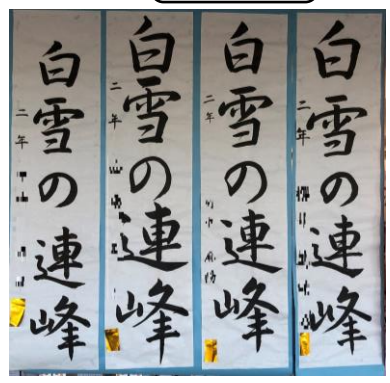 白雪の連峰
二年
白雪の連峰
二年
白雪の連峰
二年
白雪の連峰
二年